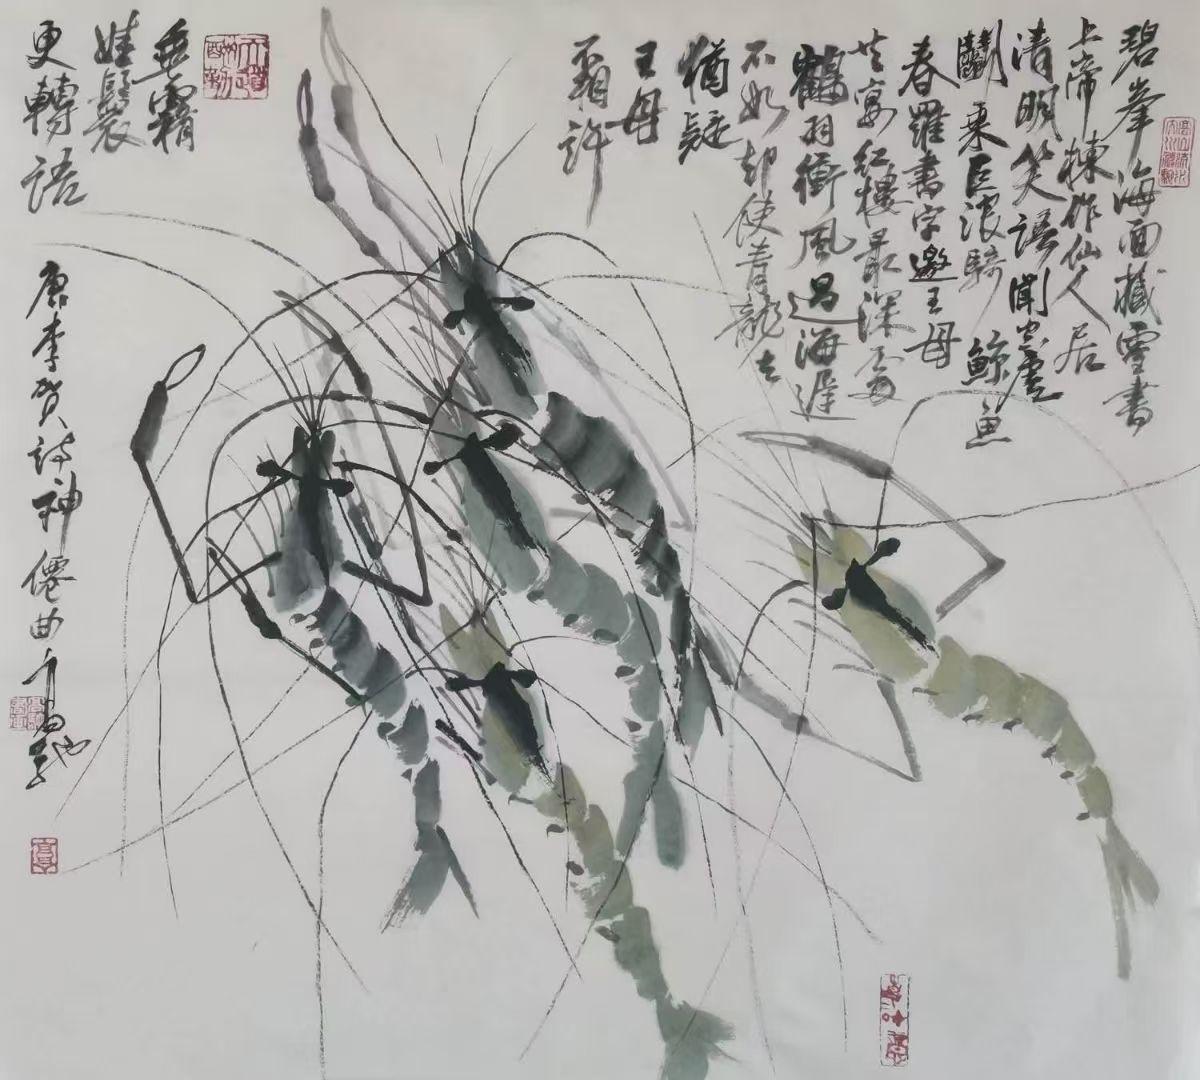 碧峯海面藏灵書
上帝揀作仙人居
清明笑語聞空虛
鬭乘巨浪騎鯨魚
春羅書字邀王母
共宴紅樓最深處
鶴羽衝風過海遲
不如却使青龍去
猶疑
王母
不相許
垂霧
娃鬟
更轉語
唐李賀詩神僊曲